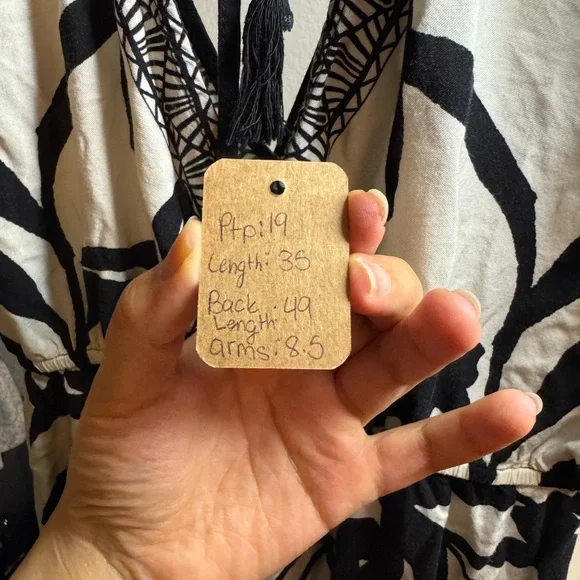 Ptp: 19
Length: 35
Back : 49
Length
arms: 8.5